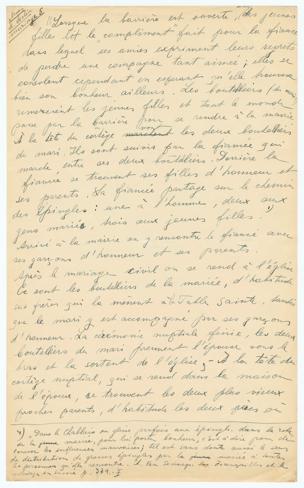 "Lorsque la barrière est ouverte, "des jeunes
filles lot le compliment" fait pour la fiancée
dans lequel ses amies expriment leurs regrets
de perdre une compagne tant aimée; elles se
consolent cependant en espérant qu'elle trouvera
bien son bonheur ailleurs. Les boutilliers
remercient les jeunes filles et tout le monde
passe par la barrière pour se rendre à la mairie
A la tête du cortège les deux boutilliers
du mari. Ils sont suivis par la fiancée qui
marche entre ses deux boutilliers. Derrière la
fiancée se trouvent ses filles d'honneur et
ses parents. La fiancée partage sur le chemin
des épingles: une à l'homme, deux aux
gens mariés, trois aux jeunes filles.
Arrivé à la mairie on y rencontre le fiancé avec
ses garçons d'honneur et ses parents.
Après le mariage civil on se rend à l'église
Ce sont les boutilliers de la mariée, d'habitude
ses frères qui la mènent à la Table Sainte, tandis
que le mari y est accompagné par ses garçons
d'honneur. La cérémonie nuptiale finie, les deux
boutilliers du mari prennent l'épouse sous le
bras et la sortent de l'église. - A la tête du
cortège nuptial, qui se rend dans la maison
de l'époux, se trouvent les deux plus vieux
proches parents, d'habitude les deux
Dans le Chablais on glisse parfois une épingle dans la robe
de la jeune mariée, pour lui porter bonheur, c'est à dire pour
les influences mauvaises; tel est sans doute aussi le sens
de distribution de épingles par la jeune mariée à toutes
les personnes qu'elle rencontre.